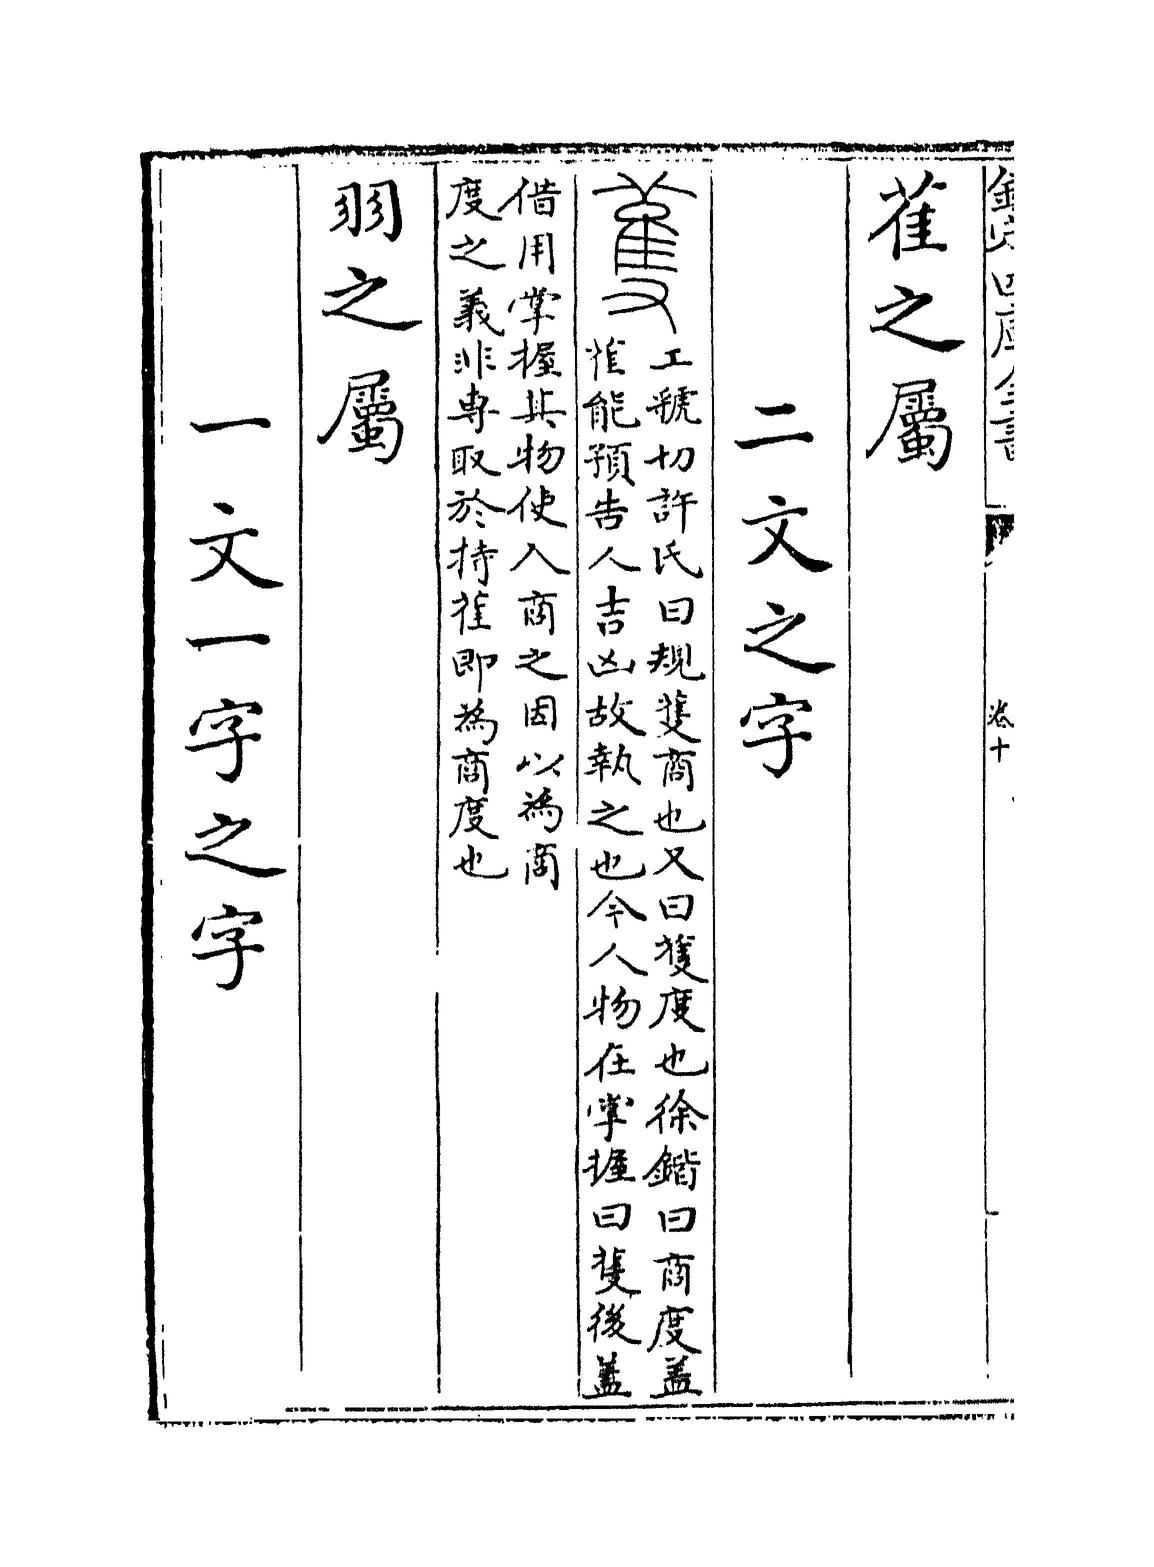 欽定四庫全書
卷十
雈之屬
二文之字
蒦
工號切許氏曰規蒦商也又曰蒦度也徐鍇曰商度蓋
雈能預告人吉凶故執之也今人物在掌握曰蒦後蓋
借用掌握其物使入商之因以為商
度之義非專取於持雈即為商度也
羽之屬
一文一字之字